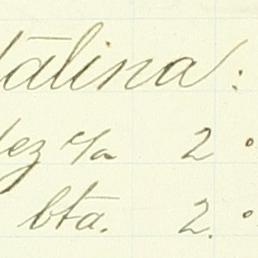 talina:
dez c/a 2 °
bta. 2. °